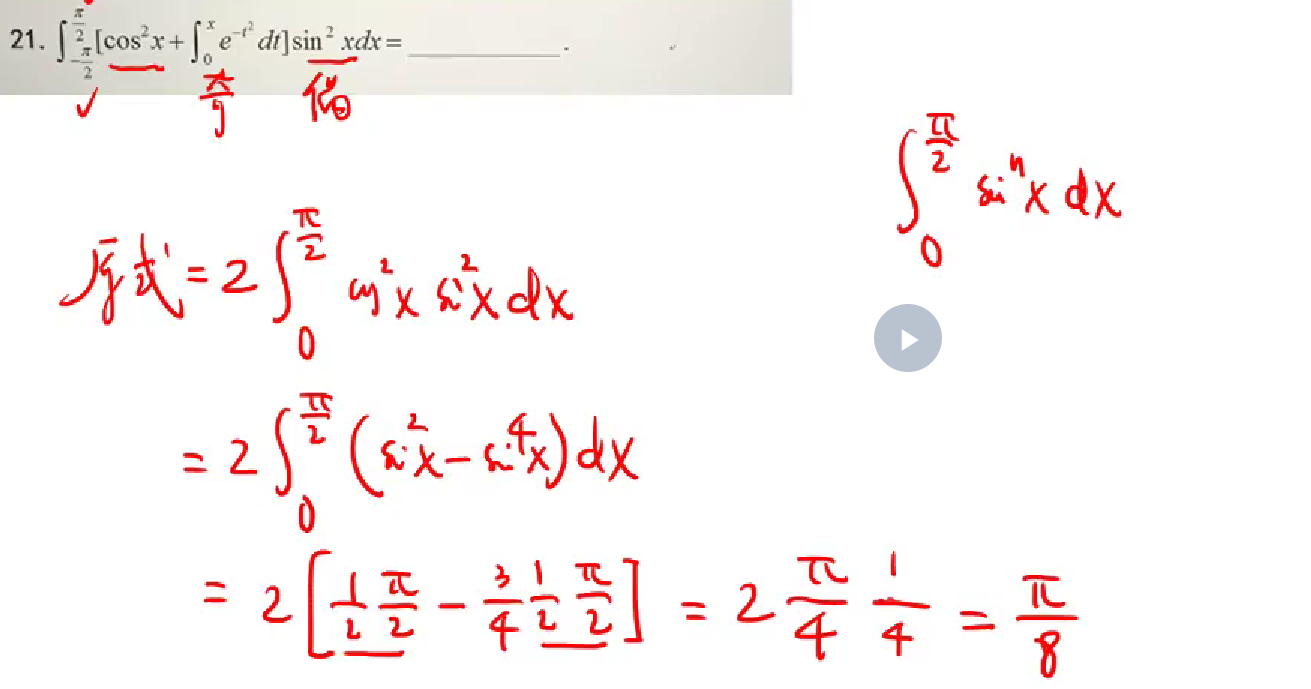 21. ∫_{-π/2}^{π/2}[cos²x+∫_0^x e^{-t²} dt]sin² xdx=____________.
奇 偶
∫_0^{π/2} sinⁿx dx
原式=2∫_0^{π/2} cos²x sin²x dx
=2∫_0^{π/2} (sin²x-sin⁴x)dx
=2[1/2 π/2 - 3/4 1/2 π/2] = 2 π/4 1/4 = π/8